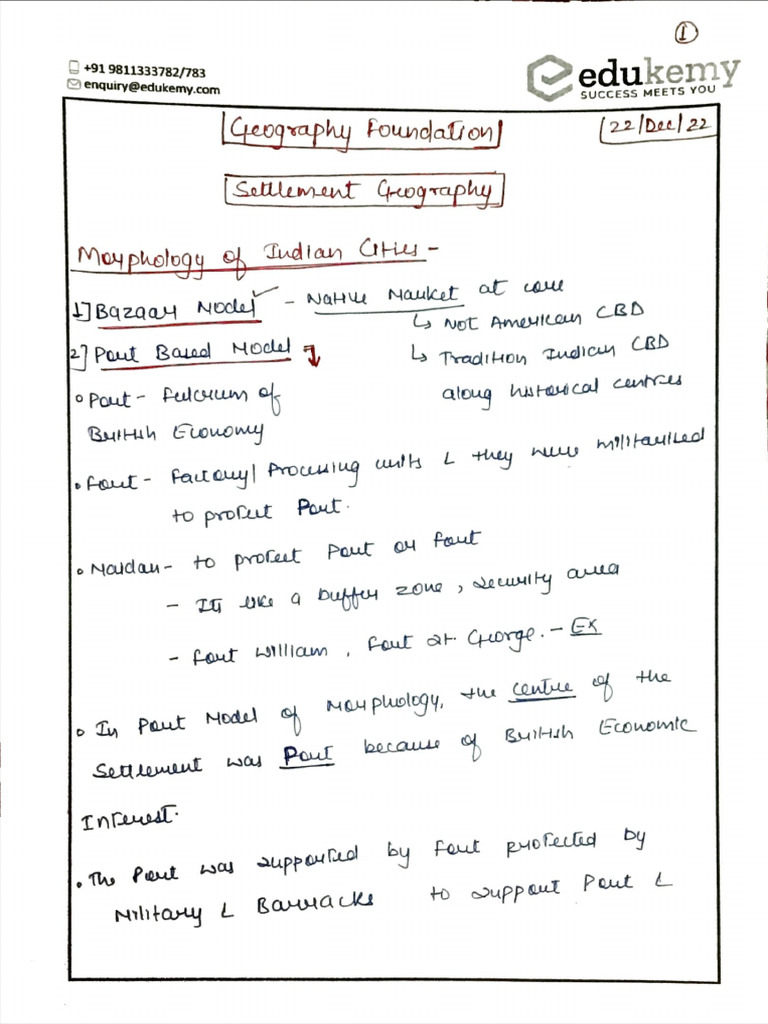 1
+91 9811333782/783
enquiry@edukemy.com
edukemy
SUCCESS MEETS YOU
Geography Foundation
22/Dec/22
Settlement Geography
Morphology of Indian Cities -
1] Bazaar Model ✓ - Native Market at core
↳ Not American CBD
2] Port Based Model ↓
↳ Tradition Indian CBD
along historical centres
• Port - fulcrum of
British Economy
• Fort - factory/Processing units & they were militarised
to protect Port.
• Maidan - to protect Port or fort
- Its like a buffer zone, security area
- Fort William, Fort St. George. - Ex
• In Port Model of Morphology, the centre of the
Settlement was Port because of British Economic
Interest.
• The Port was supported by fort protected by
Military & Barracks to support Port &